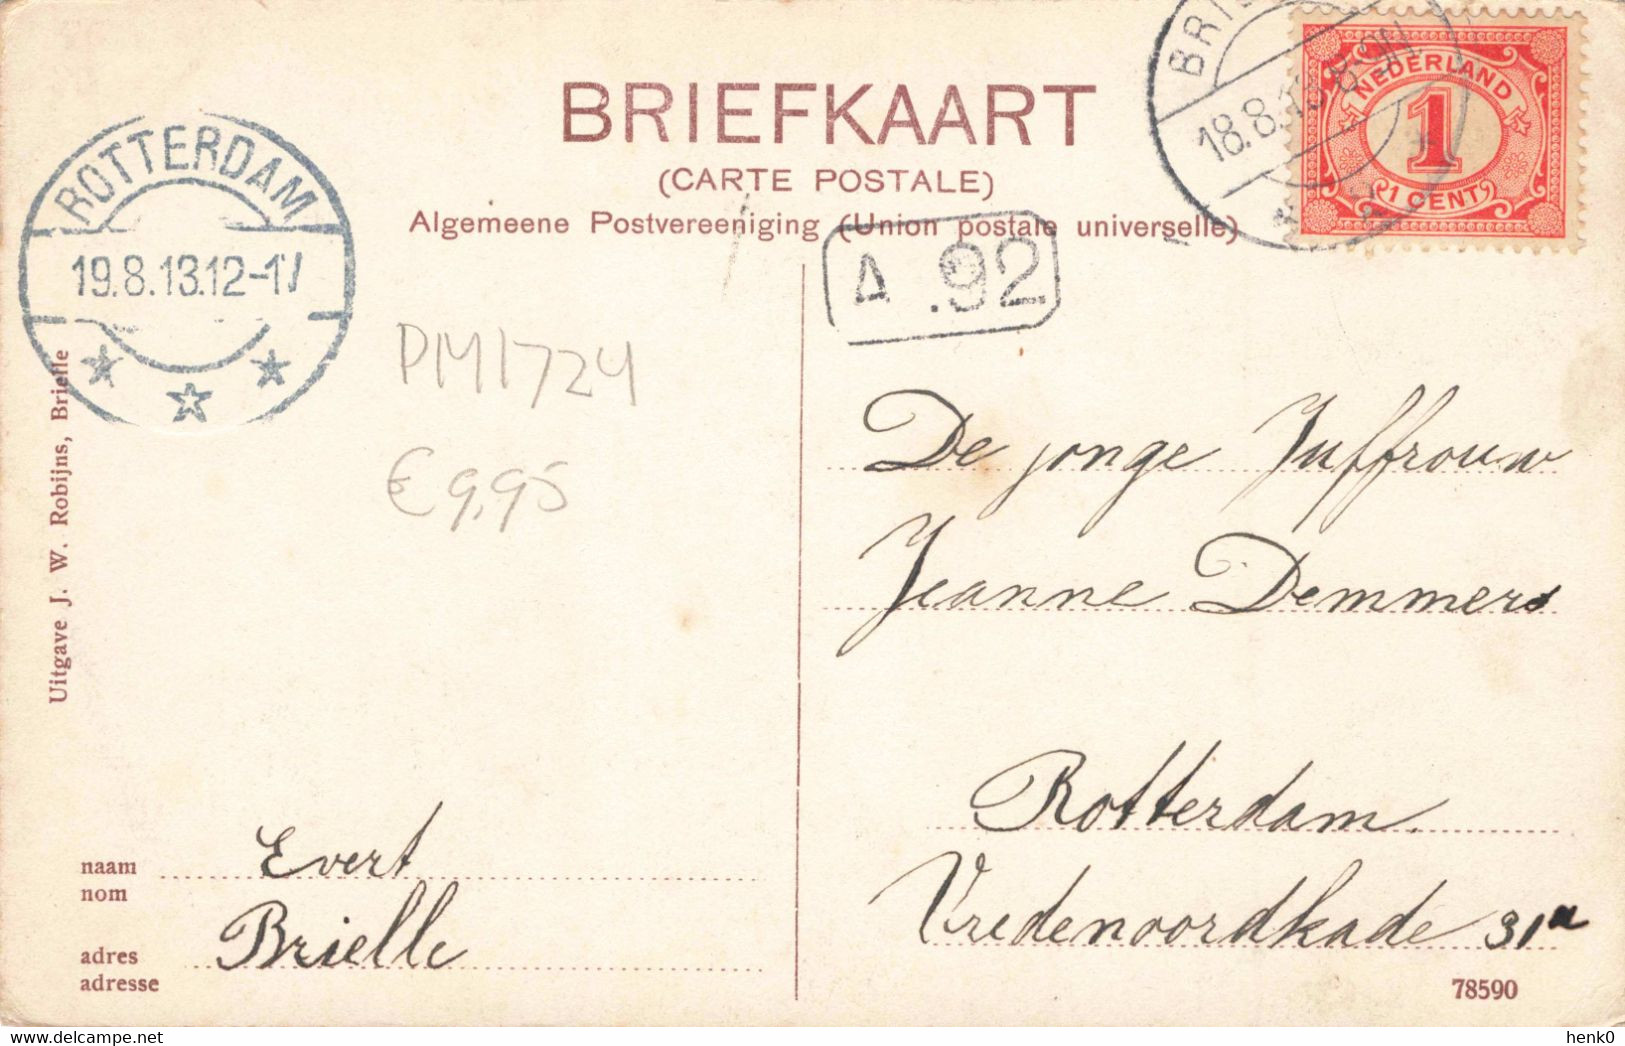 BRIEFKAART
(CARTE POSTALE)
Algemeene Postvereeniging (Union postale universelle)
ROTTERDAM
19.8.13.12-1V
18.8.13.8-9N
NEDERLAND
1
1 CENT
A .92
PM1724
€ 9,95
Uitgave J. W. Robijns, Brielle
De jonge Juffrouw
Jeanne Demmers
Rotterdam.
Vredenoordkade 31a
naam Evert
nom
adres Brielle
adresse
78590
henk0